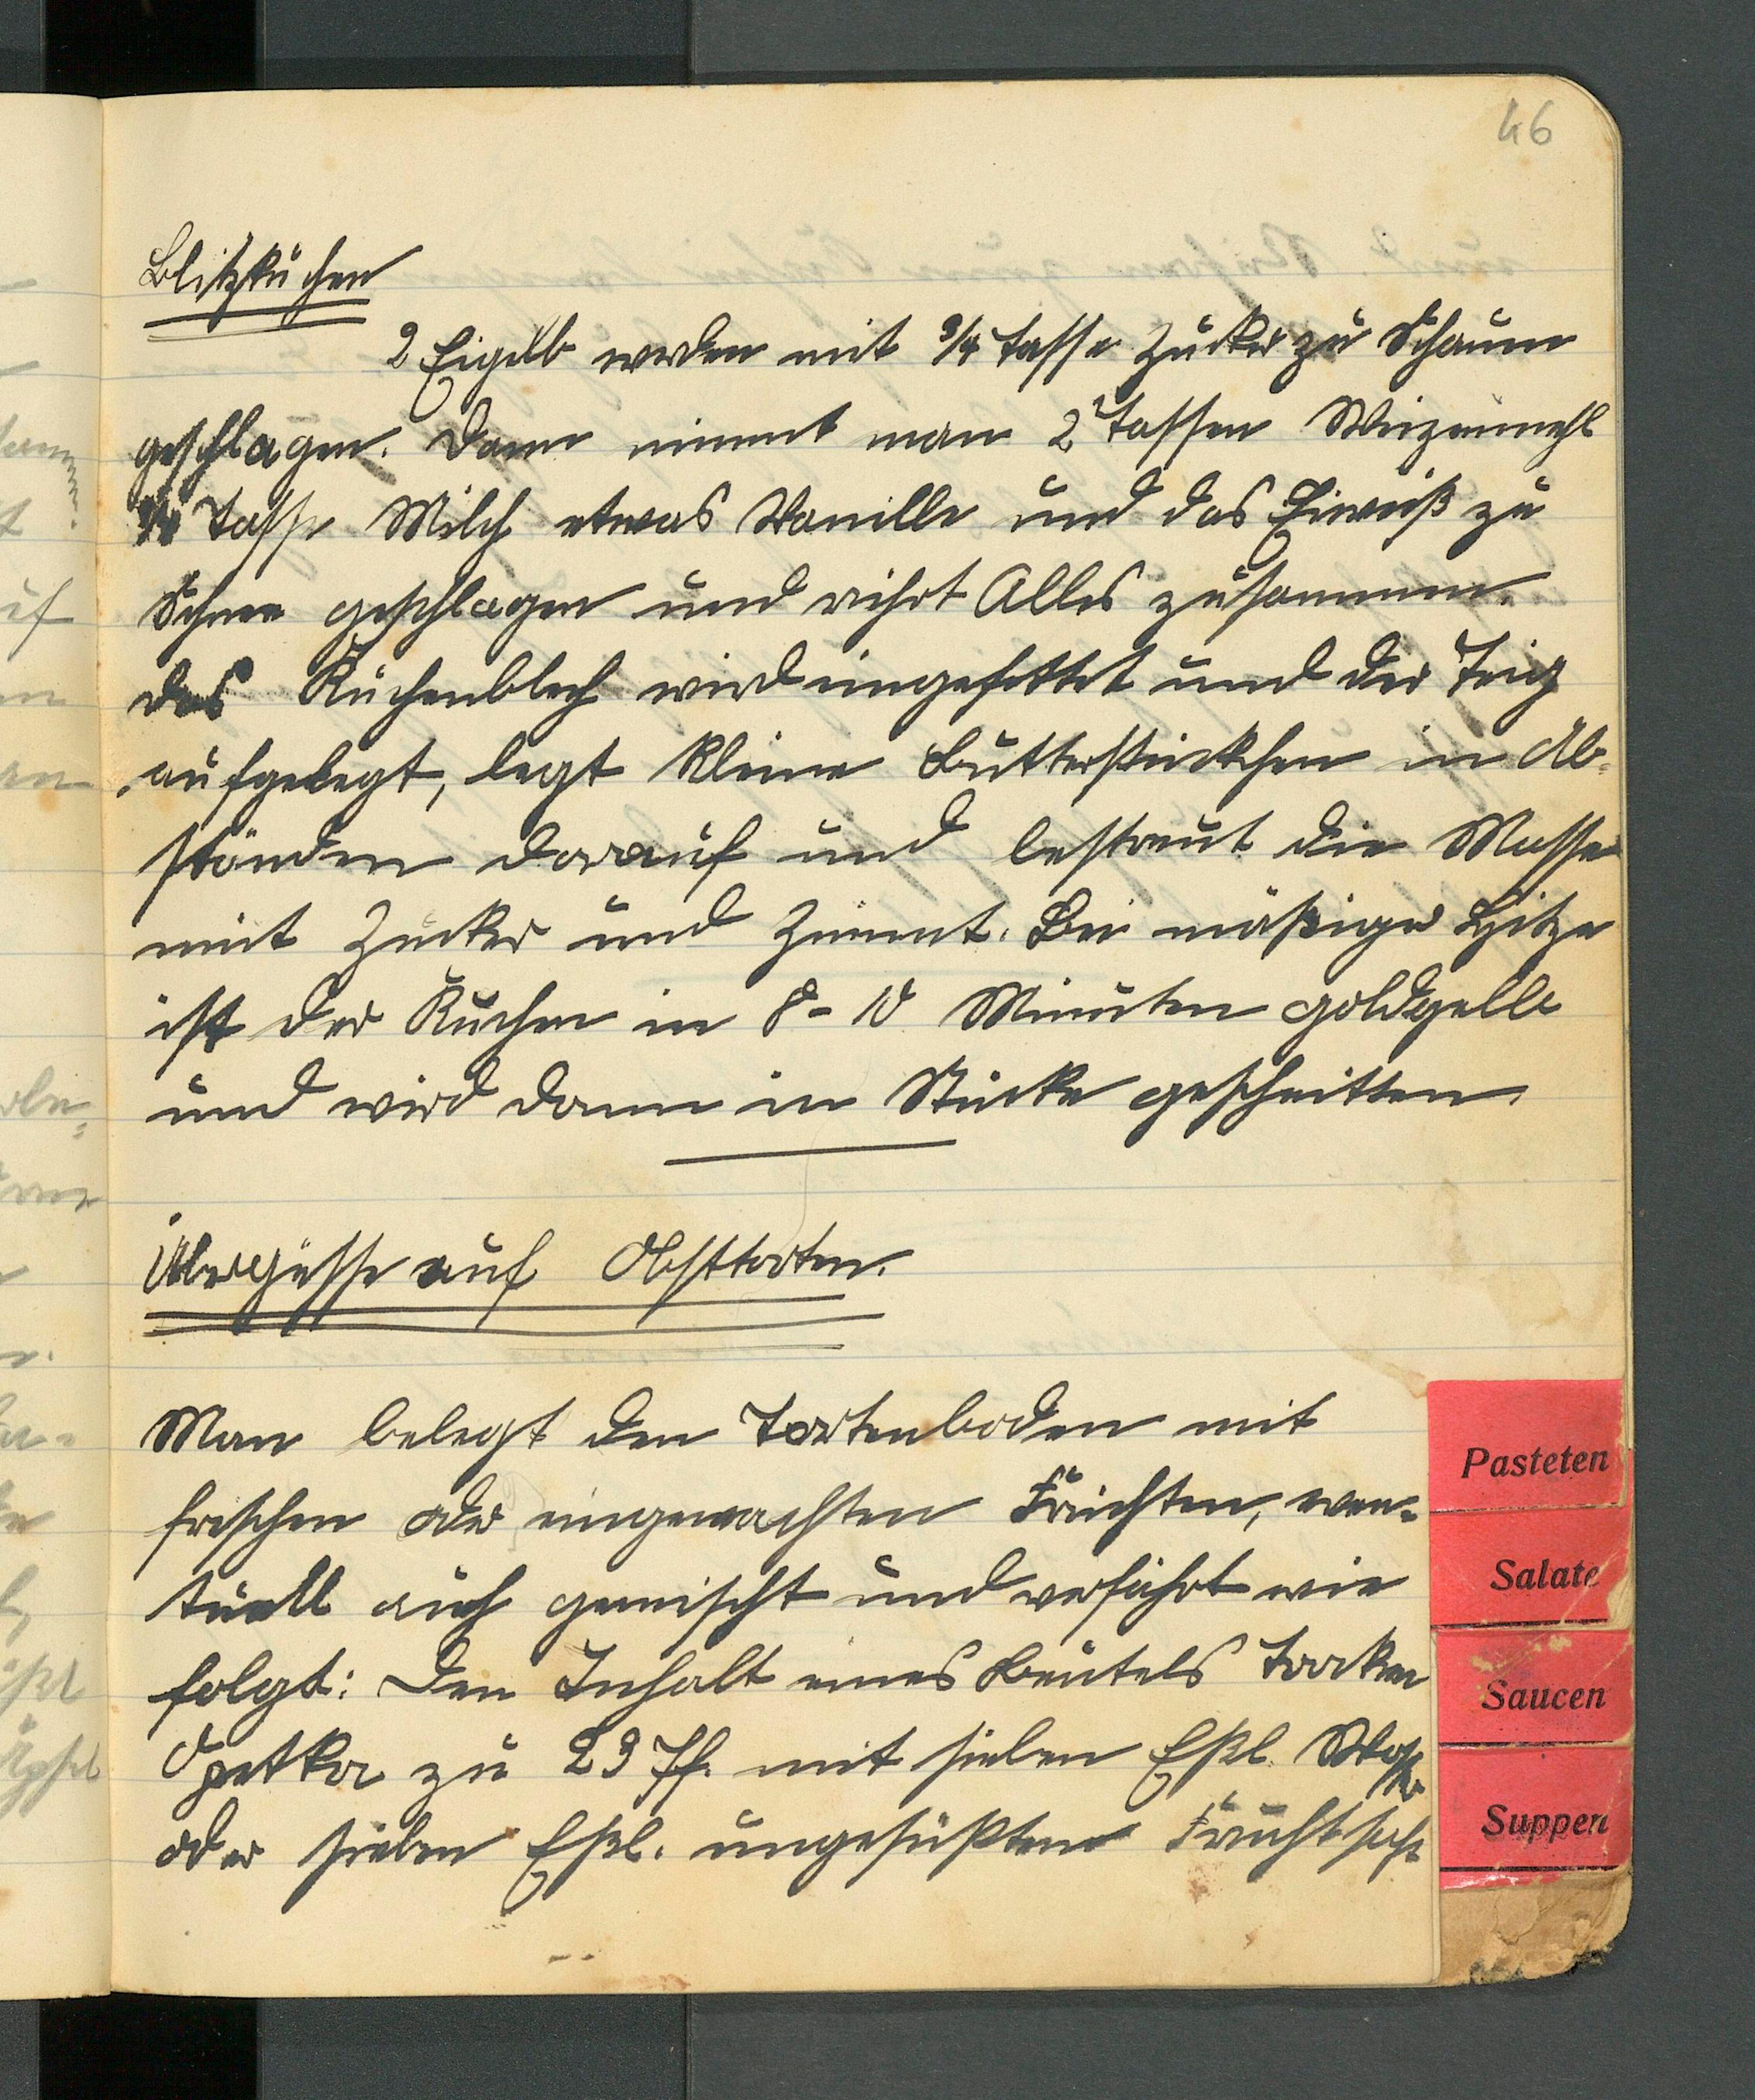 46
Blitzkuchen
2 Eigelb werden mit 3/4 Tasse Zucker zu Schaum
geschlagen. Dann nimmt man 2 Tassen Weizenmehl
3/4 Tasse Milch etwas Vanille und das Eiweiß zu
Schnee geschlagen und rührt Alles zusammen.
Das Kuchenblech wird eingefettet und der Teig
aufgelegt, legt kleine Butterstückchen in Ab-
ständen darauf und bestreut die Masse
mit Zucker und Zimmt. Bei mäßiger Hitze
ist der Kuchen in 8-10 Minuten goldgelb
und wird dann in Stücke geschnitten.
Übergüsse auf Obsttorten.
Man belegt den Tortenboden mit
frischen oder eingemachten Früchten, even-
tuell auch gemischt und verfährt wie
folgt: Den Inhalt eines Beutels Trocken
Opekta zu 23 Pf. mit sieben Eßl. Wasser
oder sieben Eßl. ungesüßten Fruchtsaft
Pasteten
Salate
Saucen
Suppen